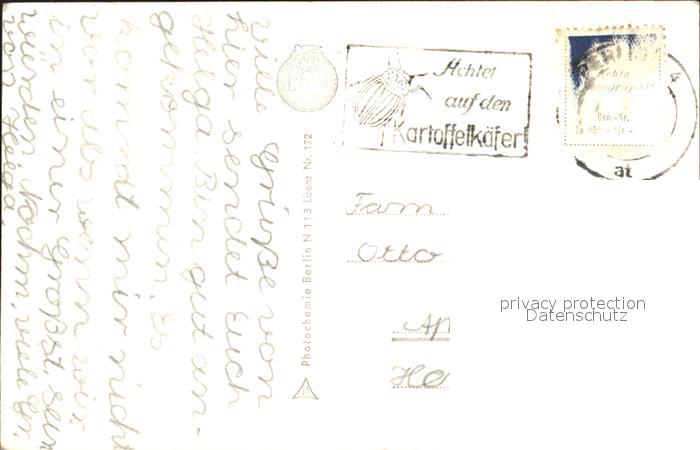 Viele Grüße von
hier sendet Euch
Helga. Bin gut an-
gekommen. Es
kommt mir nicht
vor als wenn wir
in einer Großst. sein
würden. Nochm. viele Gr.
von Helga
Photochemie Berlin N 113 Lizenz Nr. 172
Achtet
auf den
Kartoffelkäfer!
Echte
Gen.-Nr.
at
Fam.
Otto
Ha
privacy protection
Datenschutz